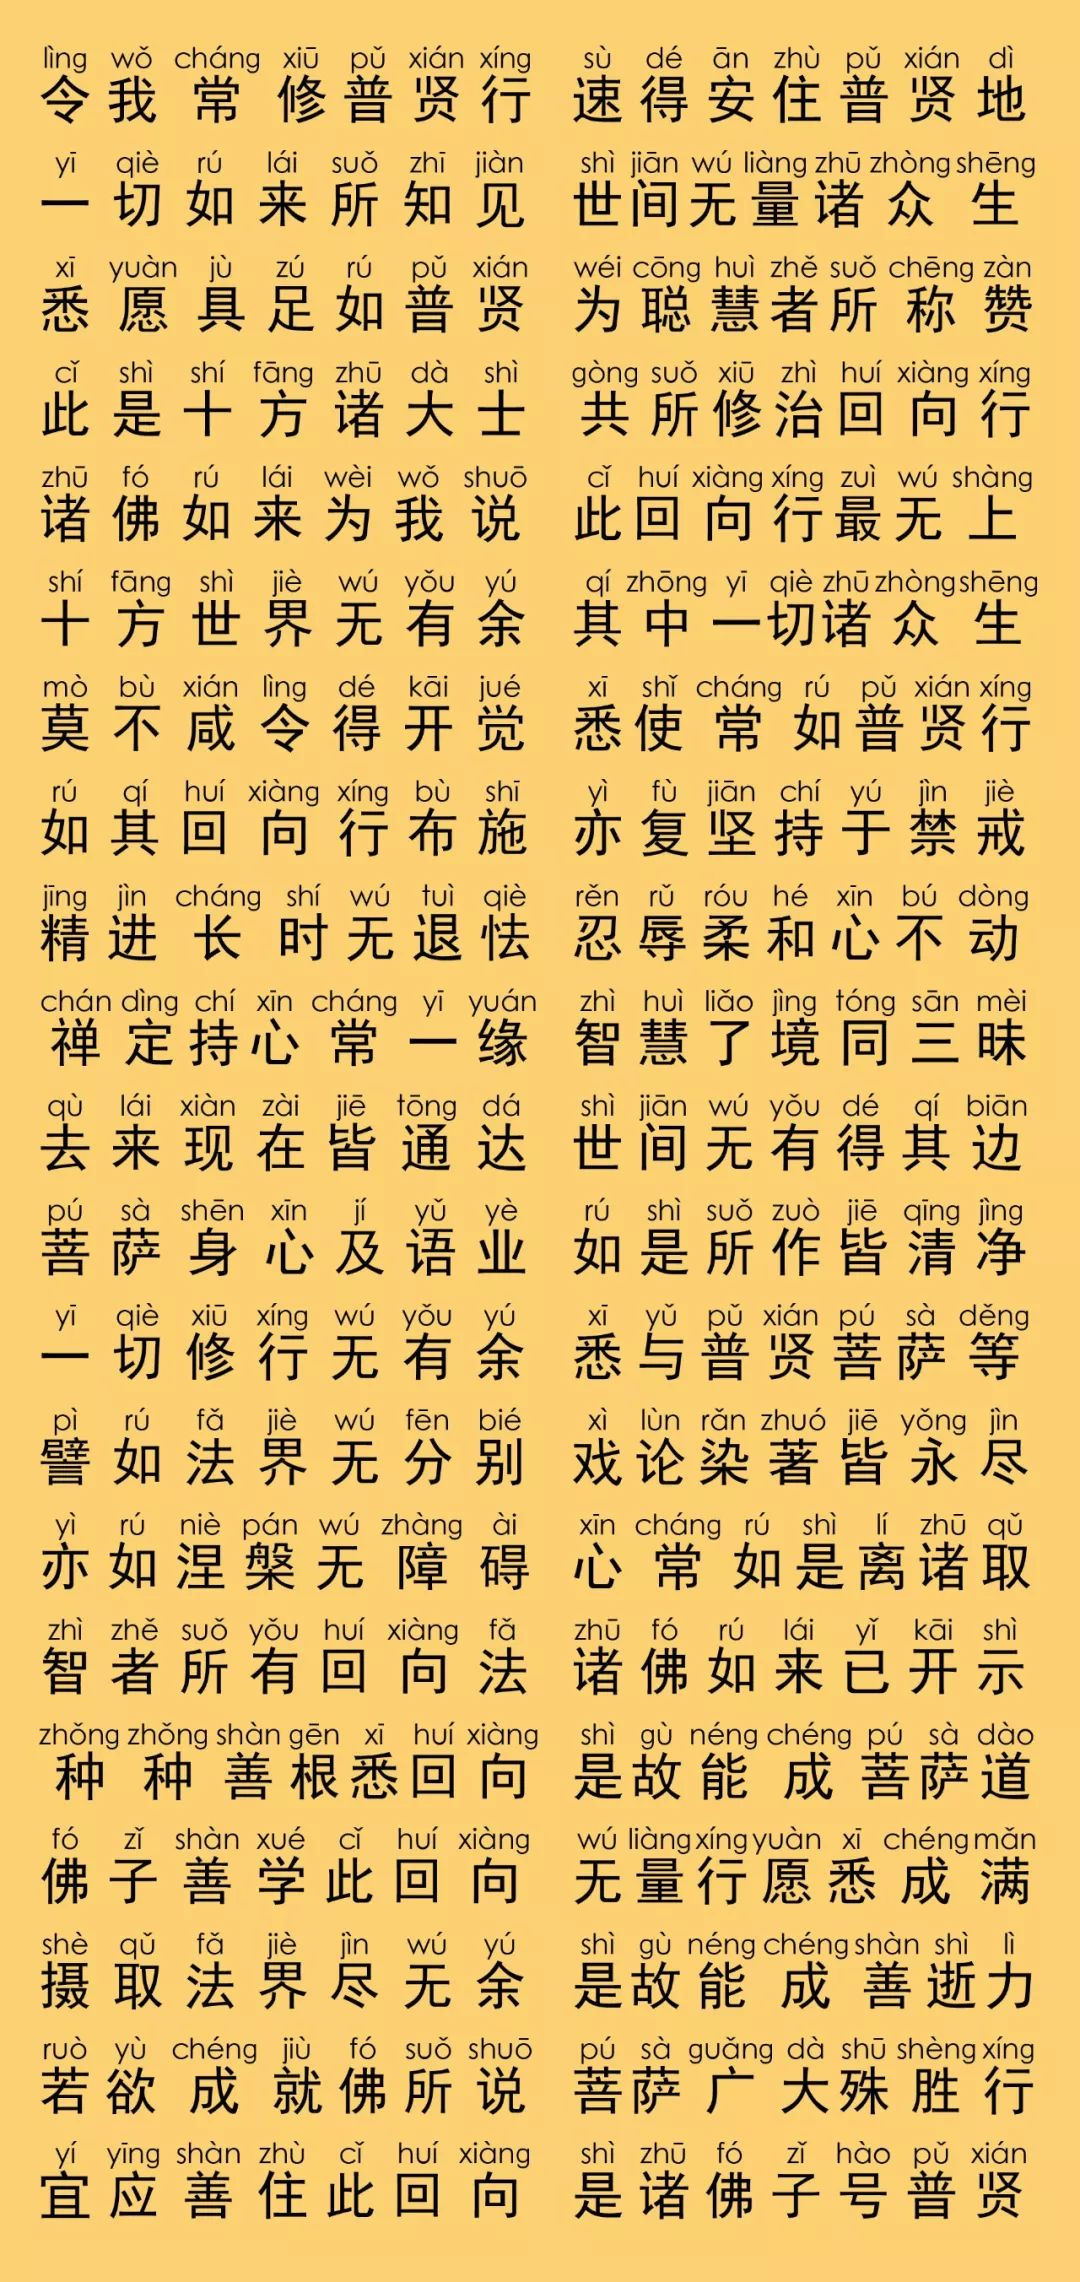 lìng wǒ cháng xiū pǔ xián xíng sù dé ān zhù pǔ xián dì
令我常修普贤行 速得安住普贤地
yī qiè rú lái suǒ zhī jiàn shì jiān wú liàng zhū zhòng shēng
一切如来所知见 世间无量诸众生
xī yuàn jù zú rú pǔ xián wéi cōng huì zhě suǒ chēng zàn
悉愿具足如普贤 为聪慧者所称赞
cǐ shì shí fāng zhū dà shì gòng suǒ xiū zhì huí xiàng xíng
此是十方诸大士 共所修治回向行
zhū fó rú lái wèi wǒ shuō cǐ huí xiàng xíng zuì wú shàng
诸佛如来为我说 此回向行最无上
shí fāng shì jiè wú yǒu yú qí zhōng yī qiè zhū zhòng shēng
十方世界无有余 其中一切诸众生
mò bù xián lìng dé kāi jué xī shǐ cháng rú pǔ xián xíng
莫不咸令得开觉 悉使常如普贤行
rú qí huí xiàng xíng bù shī yì fù jiān chí yú jìn jiè
如其回向行布施 亦复坚持于禁戒
jīng jìn cháng shí wú tuì qiè rěn rǔ róu hé xīn bú dòng
精进长时无退怯 忍辱柔和心不动
chán dìng chí xīn cháng yī yuán zhì huì liǎo jìng tóng sān mèi
禅定持心常一缘 智慧了境同三昧
qù lái xiàn zài jiē tōng dá shì jiān wú yǒu dé qí biān
去来现在皆通达 世间无有得其边
pú sà shēn xīn jí yǔ yè rú shì suǒ zuò jiē qīng jìng
菩萨身心及语业 如是所作皆清净
yī qiè xiū xíng wú yǒu yú xī yǔ pǔ xián pú sà děng
一切修行无有余 悉与普贤菩萨等
pì rú fǎ jiè wú fēn bié xì lùn rǎn zhuó jiē yǒng jìn
譬如法界无分别 戏论染著皆永尽
yì rú niè pán wú zhàng ài xīn cháng rú shì lí zhū qǔ
亦如涅槃无障碍 心常如是离诸取
zhì zhě suǒ yǒu huí xiàng fǎ zhū fó rú lái yǐ kāi shì
智者所有回向法 诸佛如来已开示
zhǒng zhǒng shàn gēn xī huí xiàng shì gù néng chéng pú sà dào
种种善根悉回向 是故能成菩萨道
fó zǐ shàn xué cǐ huí xiàng wú liàng xíng yuàn xī chéng mǎn
佛子善学此回向 无量行愿悉成满
shè qǔ fǎ jiè jìn wú yú shì gù néng chéng shàn shì lì
摄取法界尽无余 是故能成善逝力
ruò yù chéng jiù fó suǒ shuō pú sà guǎng dà shū shèng xíng
若欲成就佛所说 菩萨广大殊胜行
yí yīng shàn zhù cǐ huí xiàng shì zhū fó zǐ hào pǔ xián
宜应善住此回向 是诸佛子号普贤